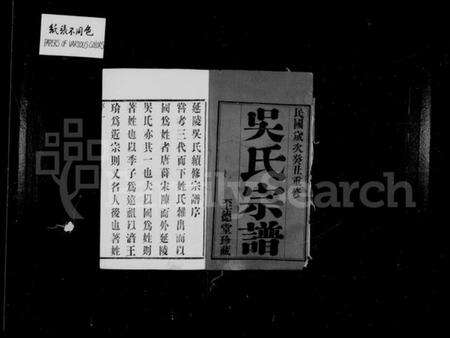 紙張不同色
PAPERS OF VARIOUS COLORS
民國歲次癸丑重修
吳氏宗譜
至德堂珍藏
延陵吳氏續修宗譜序
嘗考三代而下姓氏雜出而以
國為姓者唐蔣宋陳而外延陵
吳氏亦其一也夫以國為姓則
著姓也以季子為遠祖以諳王
瑜為近宗則又名人後也著姓
FamilySearch